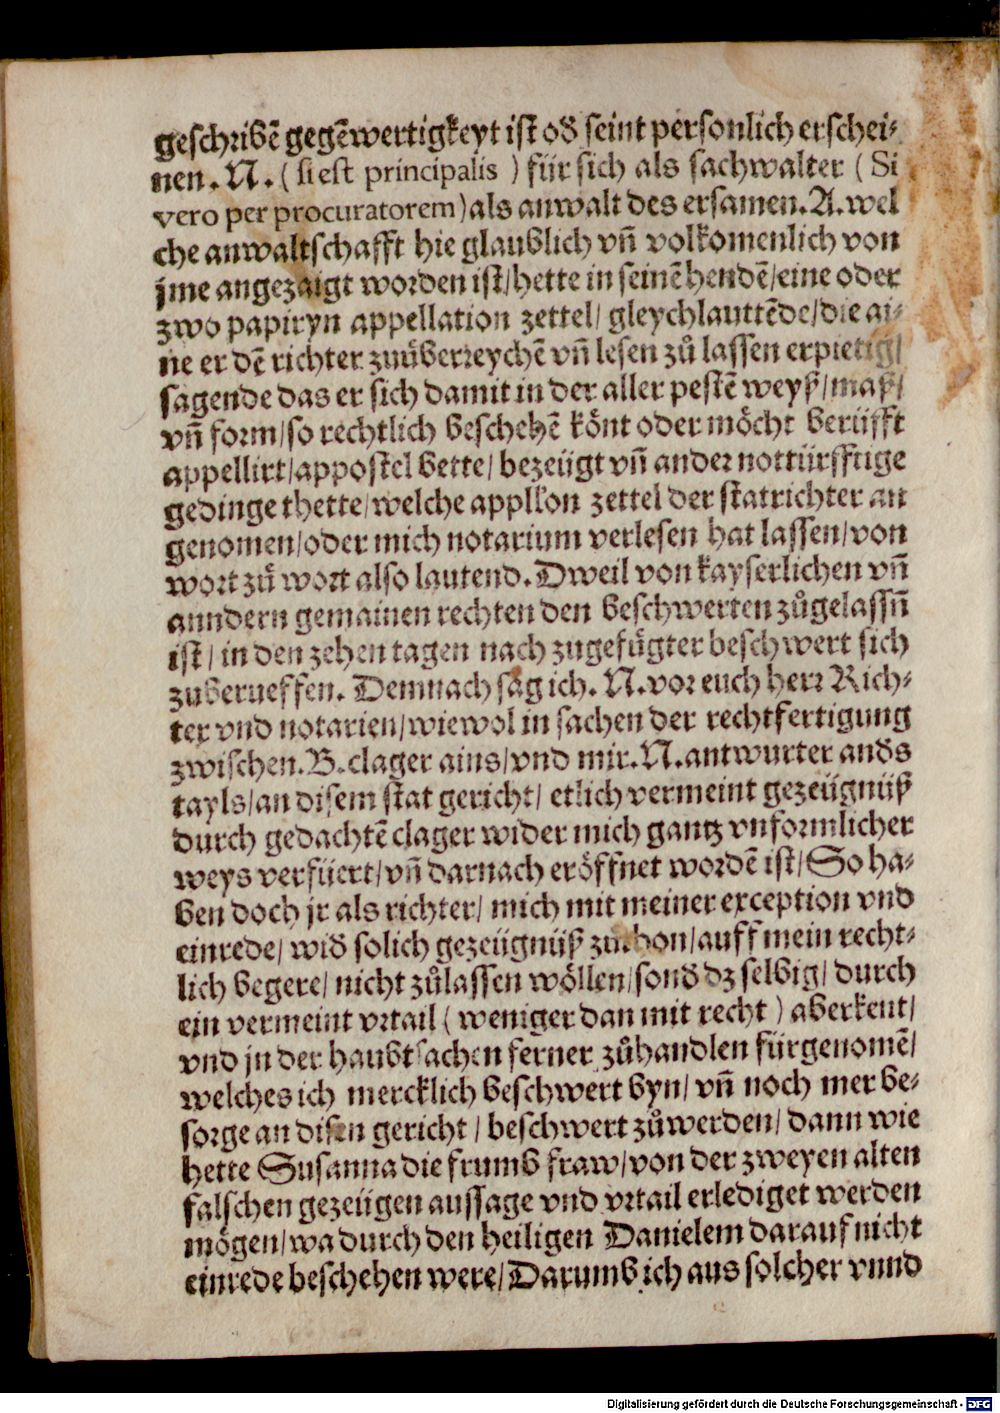 geschribē gegēwertigkeyt ist od̕ seint personlich erschei⸗
nen. N. ( si est principalis ) für sich als sachwalter ( Si
vero per procuratorem) als anwalt des ersamen. A. wel
che anwaltschafft hie glaublich vn̄ volkomenlich von
jme angezaigt worden ist/ hette in seinē hendē/ eine oder
zwo papiryn appellation zettel/ gleychlauttēde/ die ai⸗
ne er dē richter zuüberreychē vn̄ lesen zů lassen erpietig/
sagende das er sich damit in der aller pestē weyß/ maß/
vn̄ form/ so rechtlich beschehē könt oder möcht berüfft
appellirt/ appostel bette/ bezeügt vn̄ ander nottürfftige
gedinge thette/ welche appllon zettel der statrichter an
genomen/ oder mich notarium verlesen hat lassen/ von
wort zů wort also lautend. Dweil von kayserlichen vn̄
anndern gemainen rechten den beschwerten zůgelassn̄
ist/ in den zehen tagen nach zugefügter beschwert sich
zuberueffen. Demnach sag ich. N. vor euch herr Rich⸗
ter vnd notarien/ wiewol in sachen der rechtfertigung
zwischen. B. clager ains/ vnd mir. N. antwurter and̕s
tayls/ an disem stat gericht/ etlich vermeint gezeügnüß
durch gedachtē clager wider mich gantz vnformlicher
weys verfüert/ vn̄ darnach eröffnet wordē ist/ So ha⸗
ben doch jr als richter/ mich mit meiner exception vnd
einrede/ wid̕ solich gezeügnüß zuthon/ auff mein recht⸗
lich begere/ nicht zůlassen wöllen/ sond̕ dz selbig/ durch
ein vermeint vrtail ( weniger dan mit recht ) aberkent/
vnd jn der haubtsachen ferner zůhandlen fürgenomē/
welches ich mercklich beschwert byn/ vn̄ noch mer be⸗
sorge an disen gericht / beschwert zůwerden/ dann wie
hette Susanna die frumb fraw/ von der zweyen alten
falschen gezeügen aussage vnd vrtail erlediget werden
mögen/ wa durch den heiligen Danielem darauf nicht
einrede beschehen were/ Darumb ich aus solcher vnnd
Digitalisierung gefördert durch die Deutsche Forschungsgemeinschaft - DFG